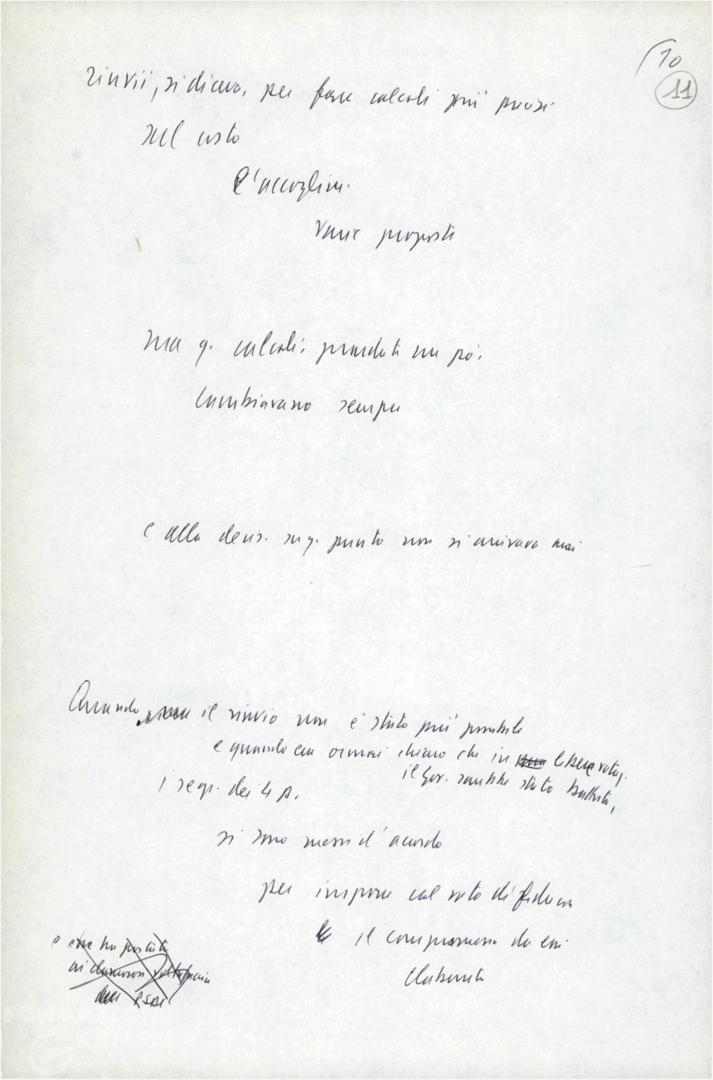 10
11
rinvii, si diceva, per fare calcoli più precisi
sul costo
l'accoglim.
varie proposte
ma q. calcoli, guardati un po',
cambiavano sempre
e alla decis. su q. punto non si arrivava mai
Quando il rinvio non è stato più possibile
e quando era ormai chiaro che in libera votaz.
il Gov. sarebbe stato battuto,
i segr. dei 4 p.
si sono messi d'accordo
per imporre col voto di fiducia
il compromesso da essi
elaborato